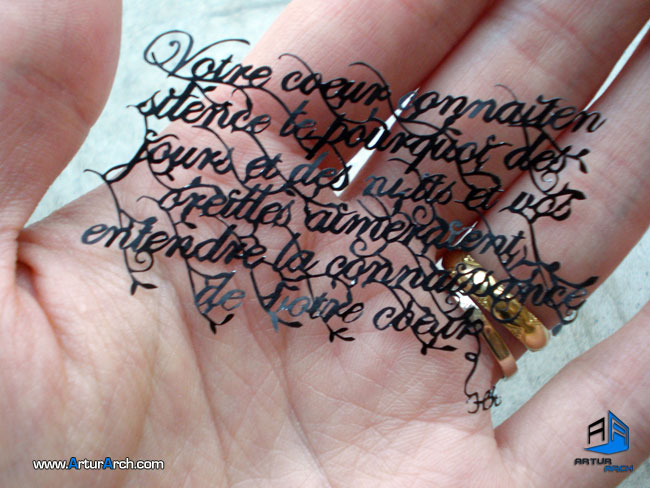 Votre coeur connaît en
silence le pourquoi des
jours et des nuits et vos
oreilles aimeraient
entendre la connaissance
de votre coeur
www.ArturArch.com
ARTUR
ARCH